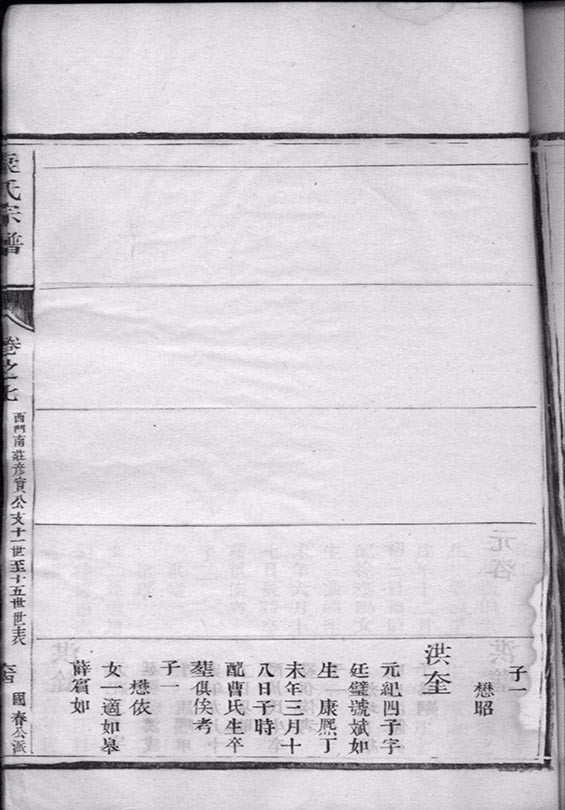 子一
懋昭
洪奎
元紀四子字
廷璧號斌如
生一康熙丁
未年三月十
八日子時
配曹氏生卒
塟俱俟考
子一
懋依
女一適如皋
薛賓如
氏宗譜
卷之七
西門南莊彥實公支十一世至十五世世表
國春公派